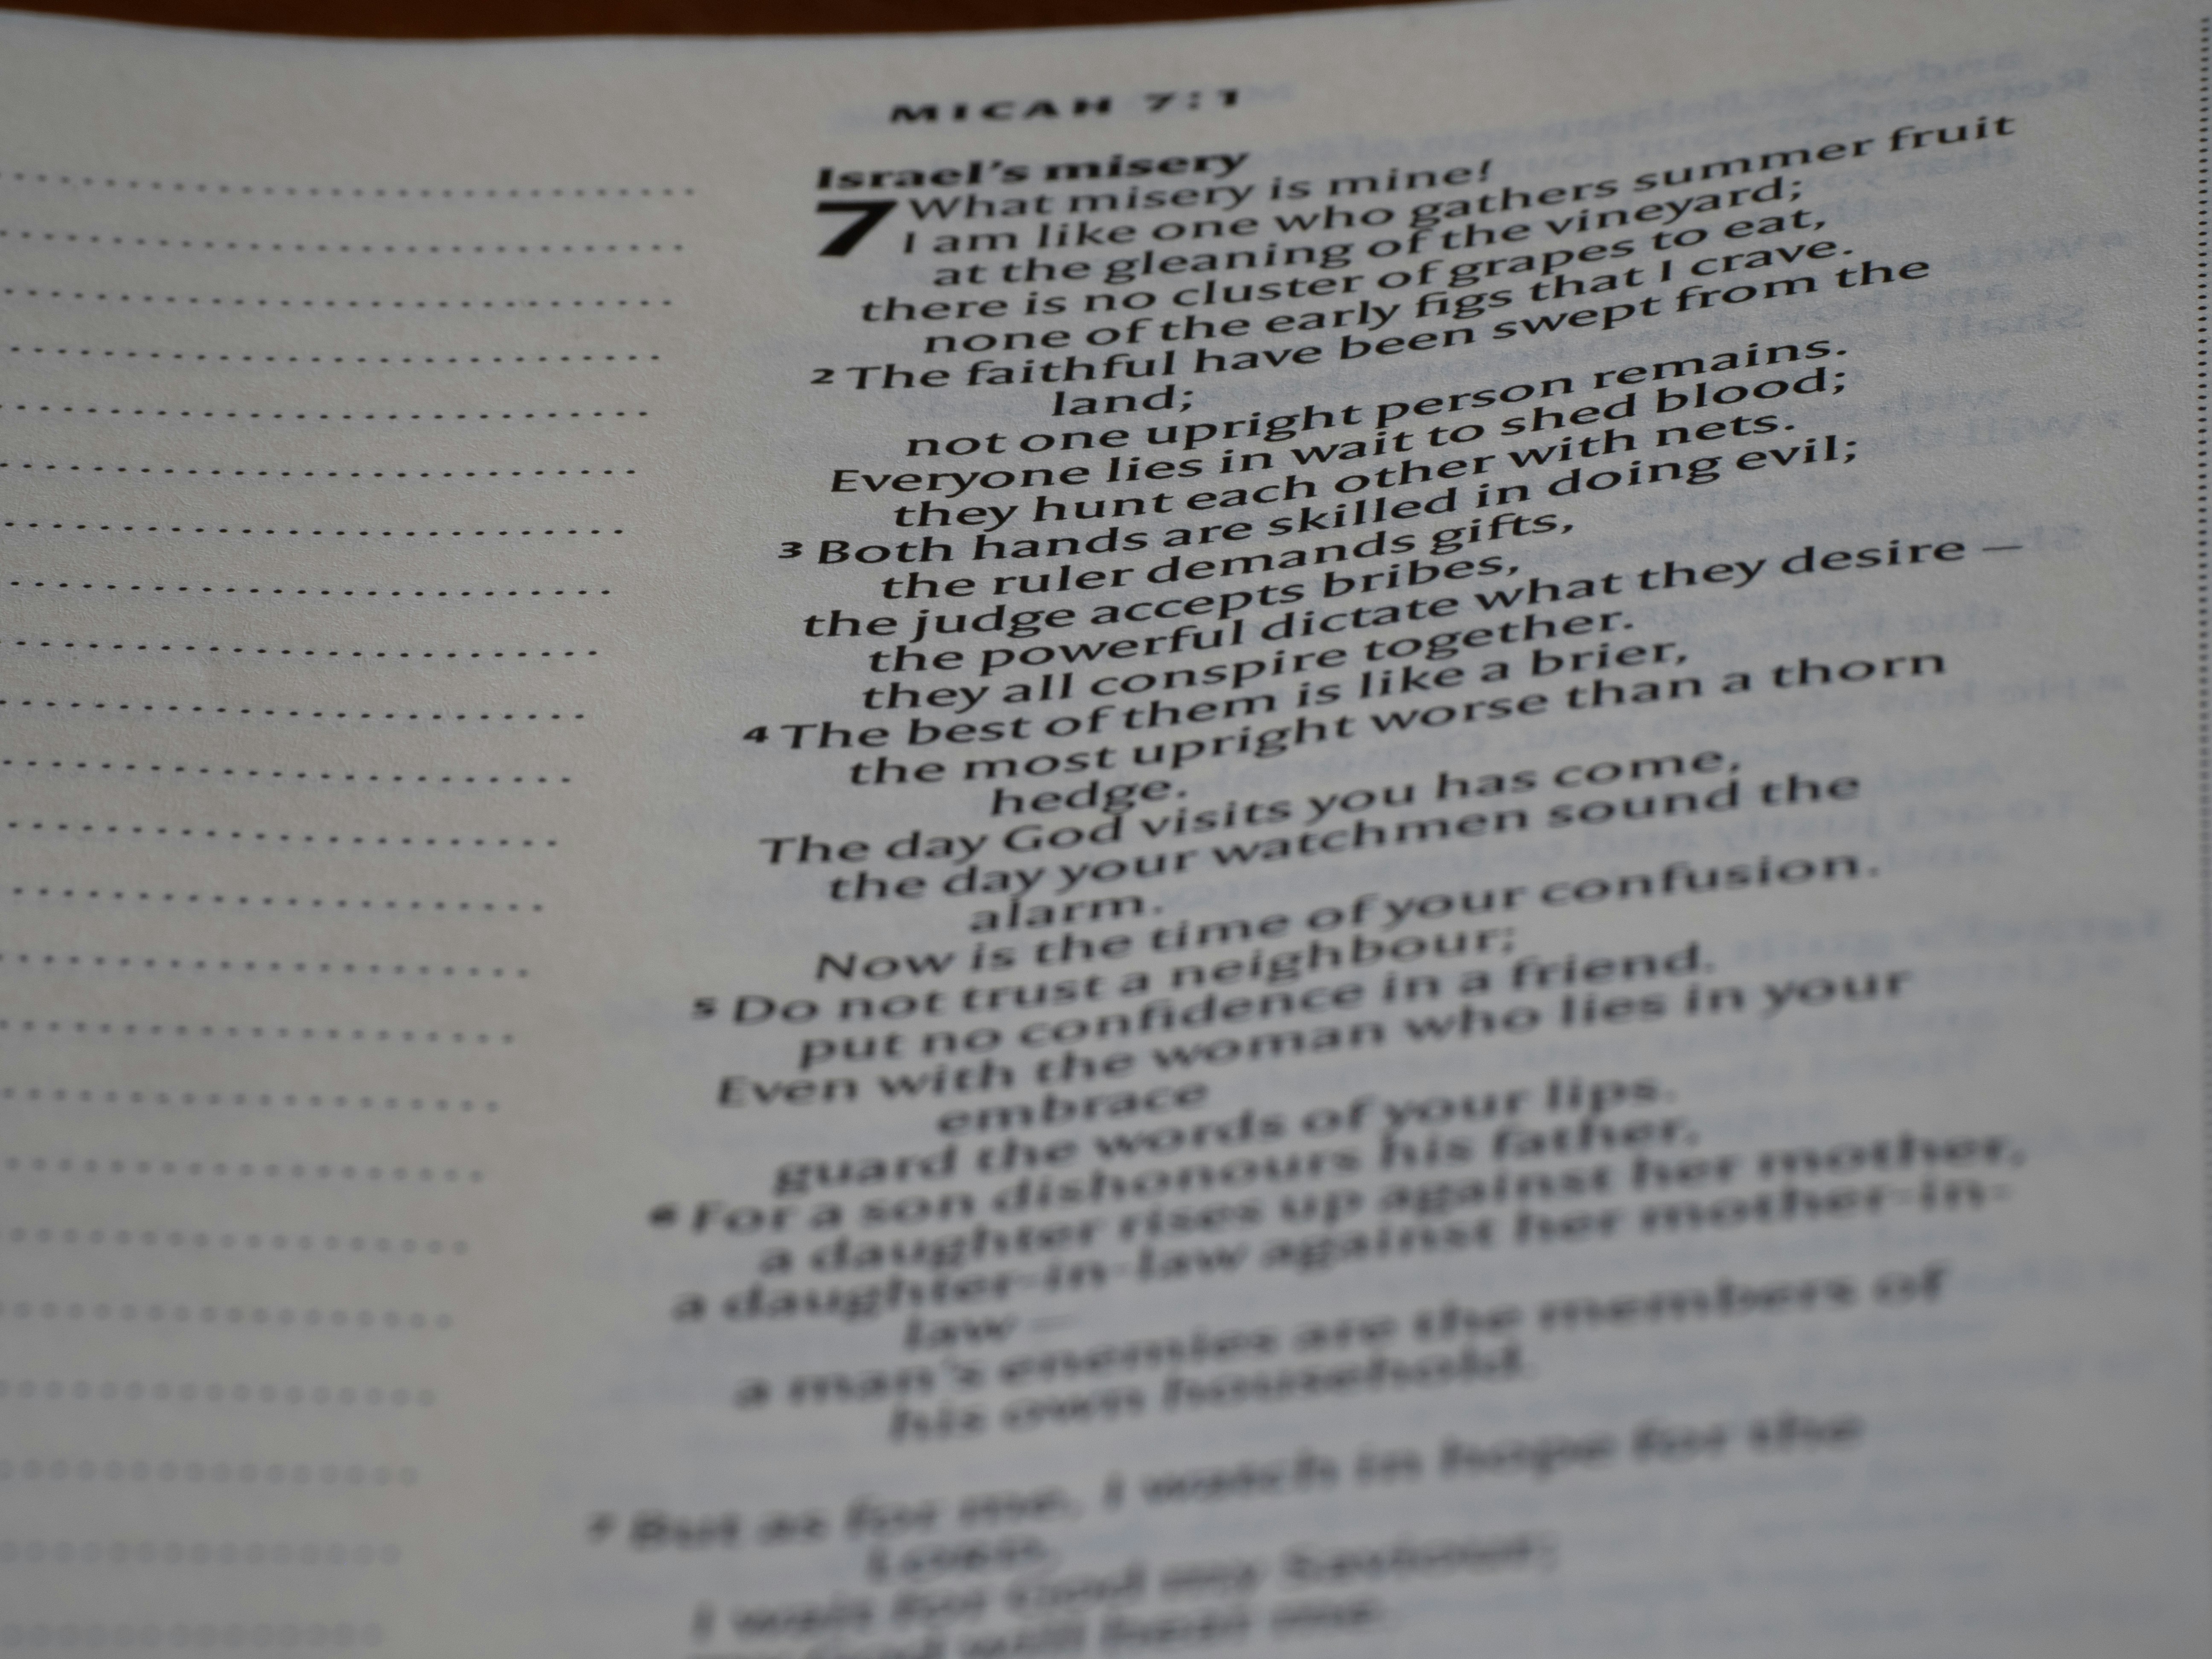 MICAH 7:1
Israel's misery
7 What misery is mine!
I am like one who gathers summer fruit
at the gleaning of the vineyard;
there is no cluster of grapes to eat,
none of the early figs that I crave.
2 The faithful have been swept from the
land;
not one upright person remains.
Everyone lies in wait to shed blood;
they hunt each other with nets.
3 Both hands are skilled in doing evil;
the ruler demands gifts,
the judge accepts bribes,
the powerful dictate what they desire –
they all conspire together.
4 The best of them is like a brier,
the most upright worse than a thorn
hedge.
The day God visits you has come,
the day your watchmen sound the
alarm.
Now is the time of your confusion.
5 Do not trust a neighbour;
put no confidence in a friend.
Even with the woman who lies in your
embrace
guard the words of your lips.
6 For a son dishonours his father,
a daughter rises up against her mother,
a daughter-in-law against her mother-in-
law –
a man's enemies are the members of
his own household.
7 But as for me, I watch in hope for the
LORD,
I wait for God my Saviour;
my God will hear me.